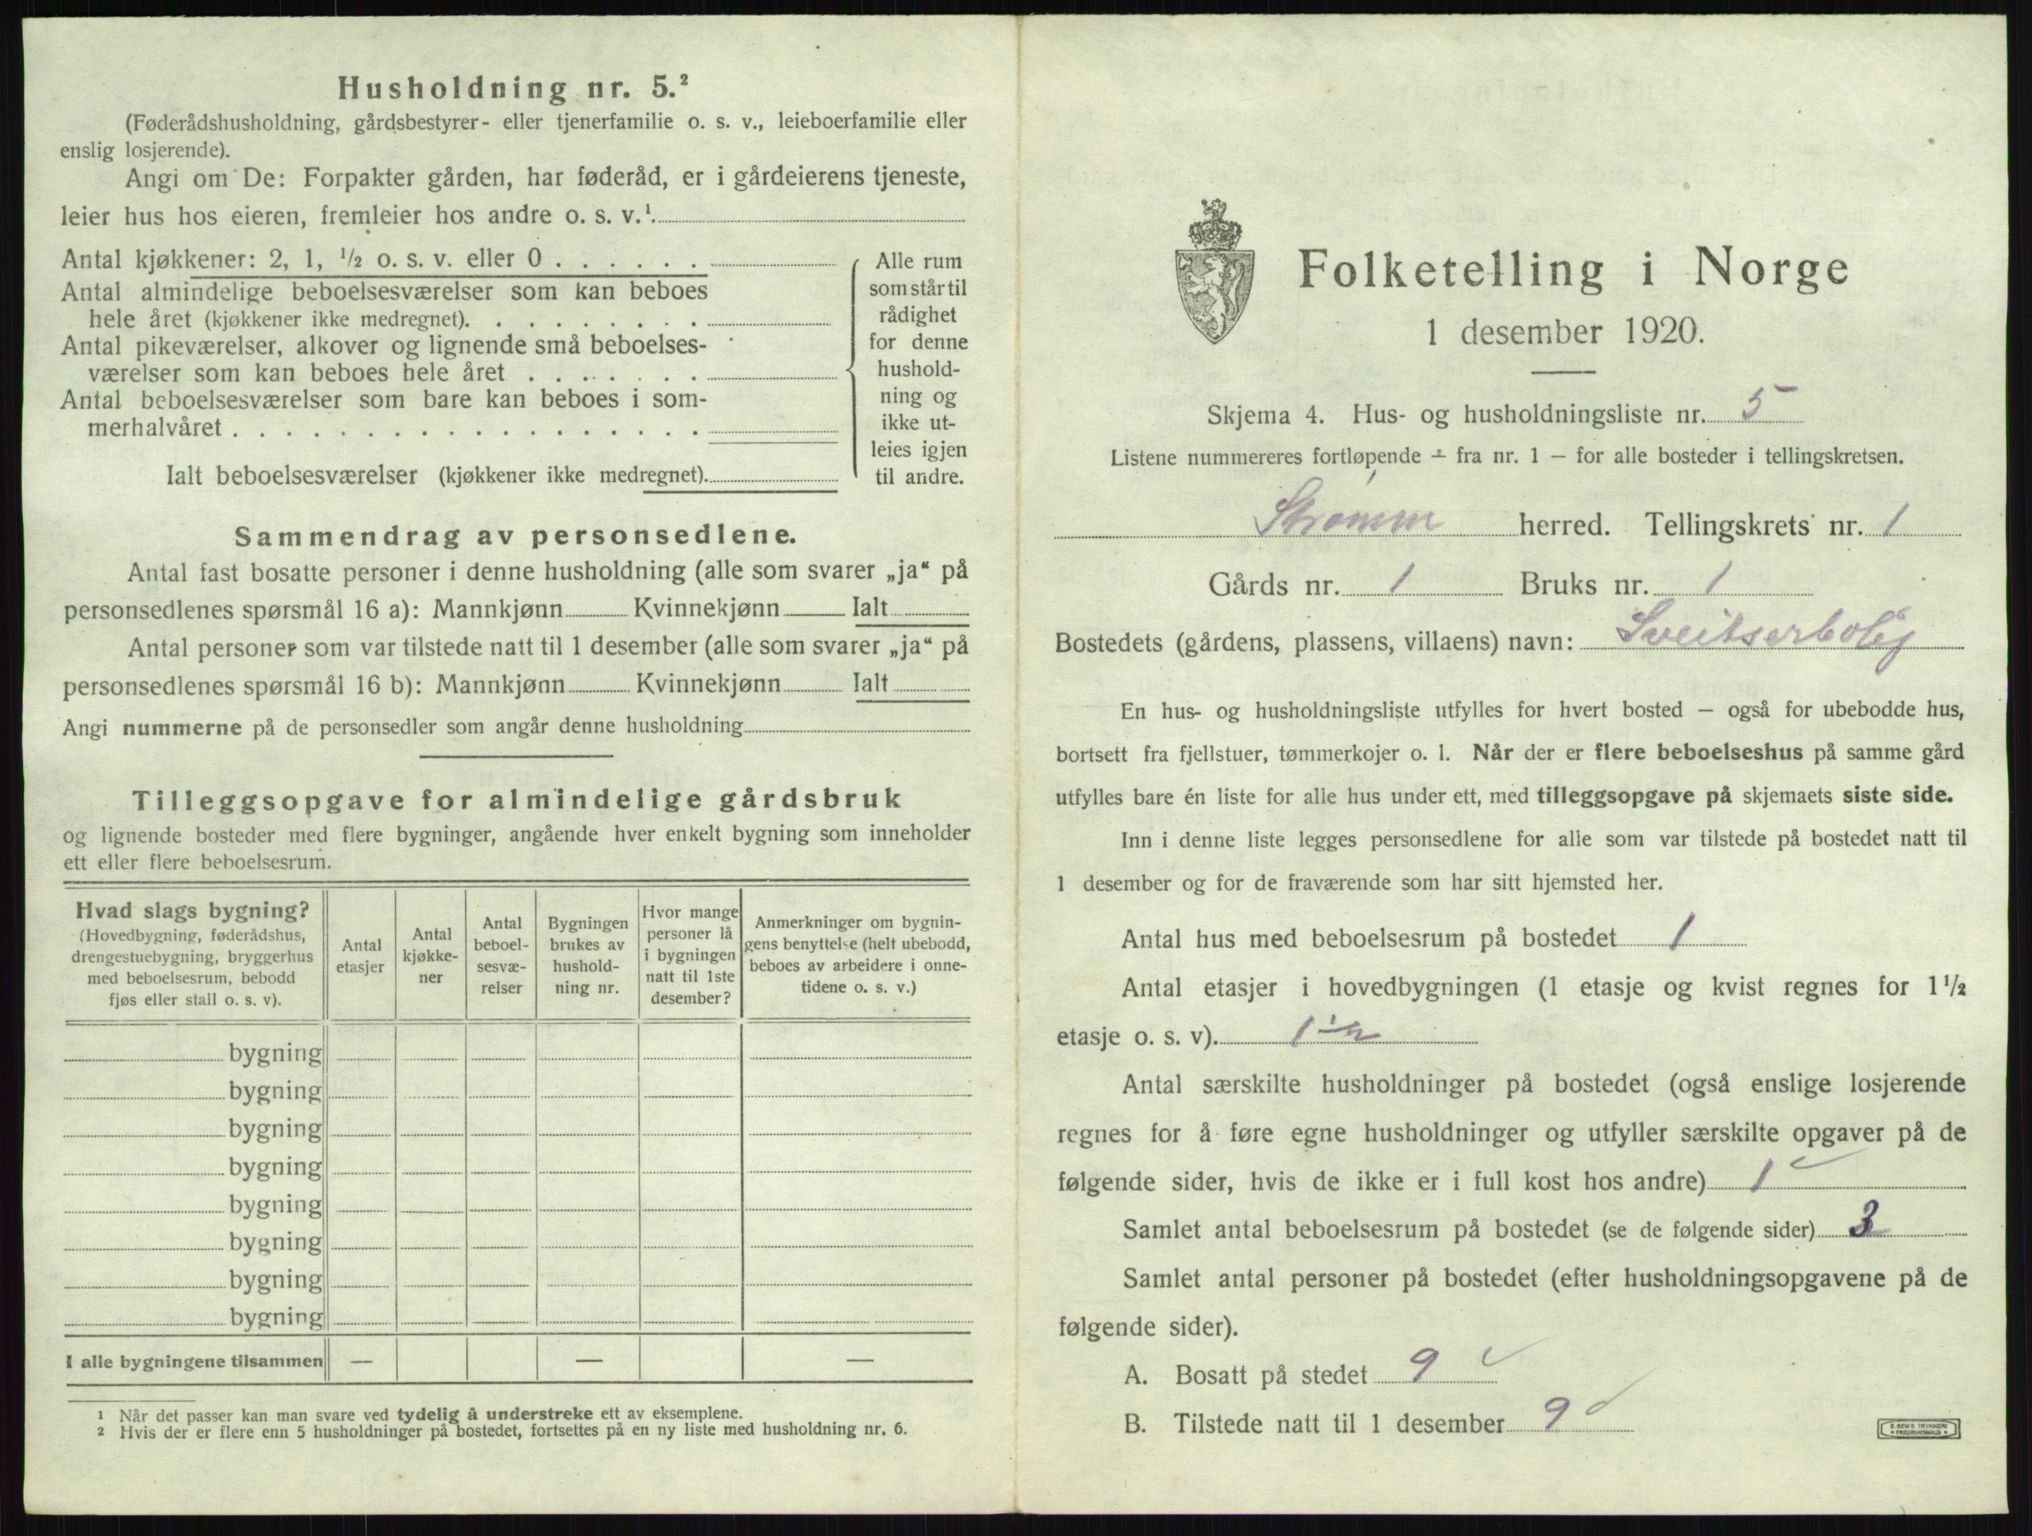 Husholdning nr. 5.²
(Føderådshusholdning, gårdsbestyrer- eller tjenerfamilie o. s. v., leieboerfamilie eller
enslig losjerende).
Angi om De: Forpakter gården, har føderåd, er i gårdeierens tjeneste,
leier hus hos eieren, fremleier hos andre o. s. v.¹
Antal kjøkkener: 2, 1, ½ o. s. v. eller 0
Antal almindelige beboelsesværelser som kan beboes
hele året (kjøkkener ikke medregnet).
Antal pikeværelser, alkover og lignende små beboelses-
værelser som kan beboes hele året
Antal beboelsesværelser som bare kan beboes i som-
merhalvåret
Ialt beboelsesværelser (kjøkkener ikke medregnet).
Alle rum
som står til
rådighet
for denne
hushold-
ning og
ikke ut-
leies igjen
til andre.
Sammendrag av personsedlene.
Antal fast bosatte personer i denne husholdning (alle som svarer „ja“ på
personsedlenes spørsmål 16 a): Mannkjønn Kvinnekjønn Ialt
Antal personer som var tilstede natt til 1 desember (alle som svarer „ja“ på
personsedlenes spørsmål 16 b): Mannkjønn Kvinnekjønn Ialt
Angi nummerne på de personsedler som angår denne husholdning
Tilleggsopgave for almindelige gårdsbruk
og lignende bosteder med flere bygninger, angående hver enkelt bygning som inneholder
ett eller flere beboelsesrum.
Hvad slags bygning?
(Hovedbygning, føderådshus,
drengestuebygning, bryggerhus
med beboelsesrum, bebodd
fjøs eller stall o. s. v).
Antal
etasjer
Antal
kjøkke-
ner
Antal
beboel-
sesvæ-
relser
Bygningen
brukes av
hushold-
ning nr.
Hvor mange
personer lå
i bygningen
natt til 1ste
desember?
Anmerkninger om bygnin-
gens benyttelse (helt ubebodd,
beboes av arbeidere i onne-
tidene o. s. v.)
bygning
bygning
bygning
bygning
bygning
bygning
bygning
bygning
I alle bygningene tilsammen — — —
1 Når det passer kan man svare ved tydelig å understreke ett av eksemplene.
2 Hvis der er flere enn 5 husholdninger på bostedet, fortsettes på en ny liste med husholdning nr. 6.
Folketelling i Norge
1 desember 1920.
Skjema 4. Hus- og husholdningsliste nr. 5
Listene nummereres fortløpende — fra nr. 1 — for alle bosteder i tellingskretsen.
Strømm herred. Tellingskrets nr. 1
Gårds nr. 1 Bruks nr. 1
Bostedets (gårdens, plassens, villaens) navn: Sveitserbolig
En hus- og husholdningsliste utfylles for hvert bosted — også for ubebodde hus,
bortsett fra fjellstuer, tømmerkojer o. l. Når der er flere beboelseshus på samme gård
utfylles bare én liste for alle hus under ett, med tilleggsopgave på skjemaets siste side.
Inn i denne liste legges personsedlene for alle som var tilstede på bostedet natt til
1 desember og for de fraværende som har sitt hjemsted her.
Antal hus med beboelsesrum på bostedet 1
Antal etasjer i hovedbygningen (1 etasje og kvist regnes for 1½
etasje o. s. v). 1½
Antal særskilte husholdninger på bostedet (også enslige losjerende
regnes for å føre egne husholdninger og utfyller særskilte opgaver på de
følgende sider, hvis de ikke er i full kost hos andre) 1 ✓
Samlet antal beboelsesrum på bostedet (se de følgende sider) 3
Samlet antal personer på bostedet (efter husholdningsopgavene på de
følgende sider).
A. Bosatt på stedet 9 ✓
B. Tilstede natt til 1 desember 9 ✓